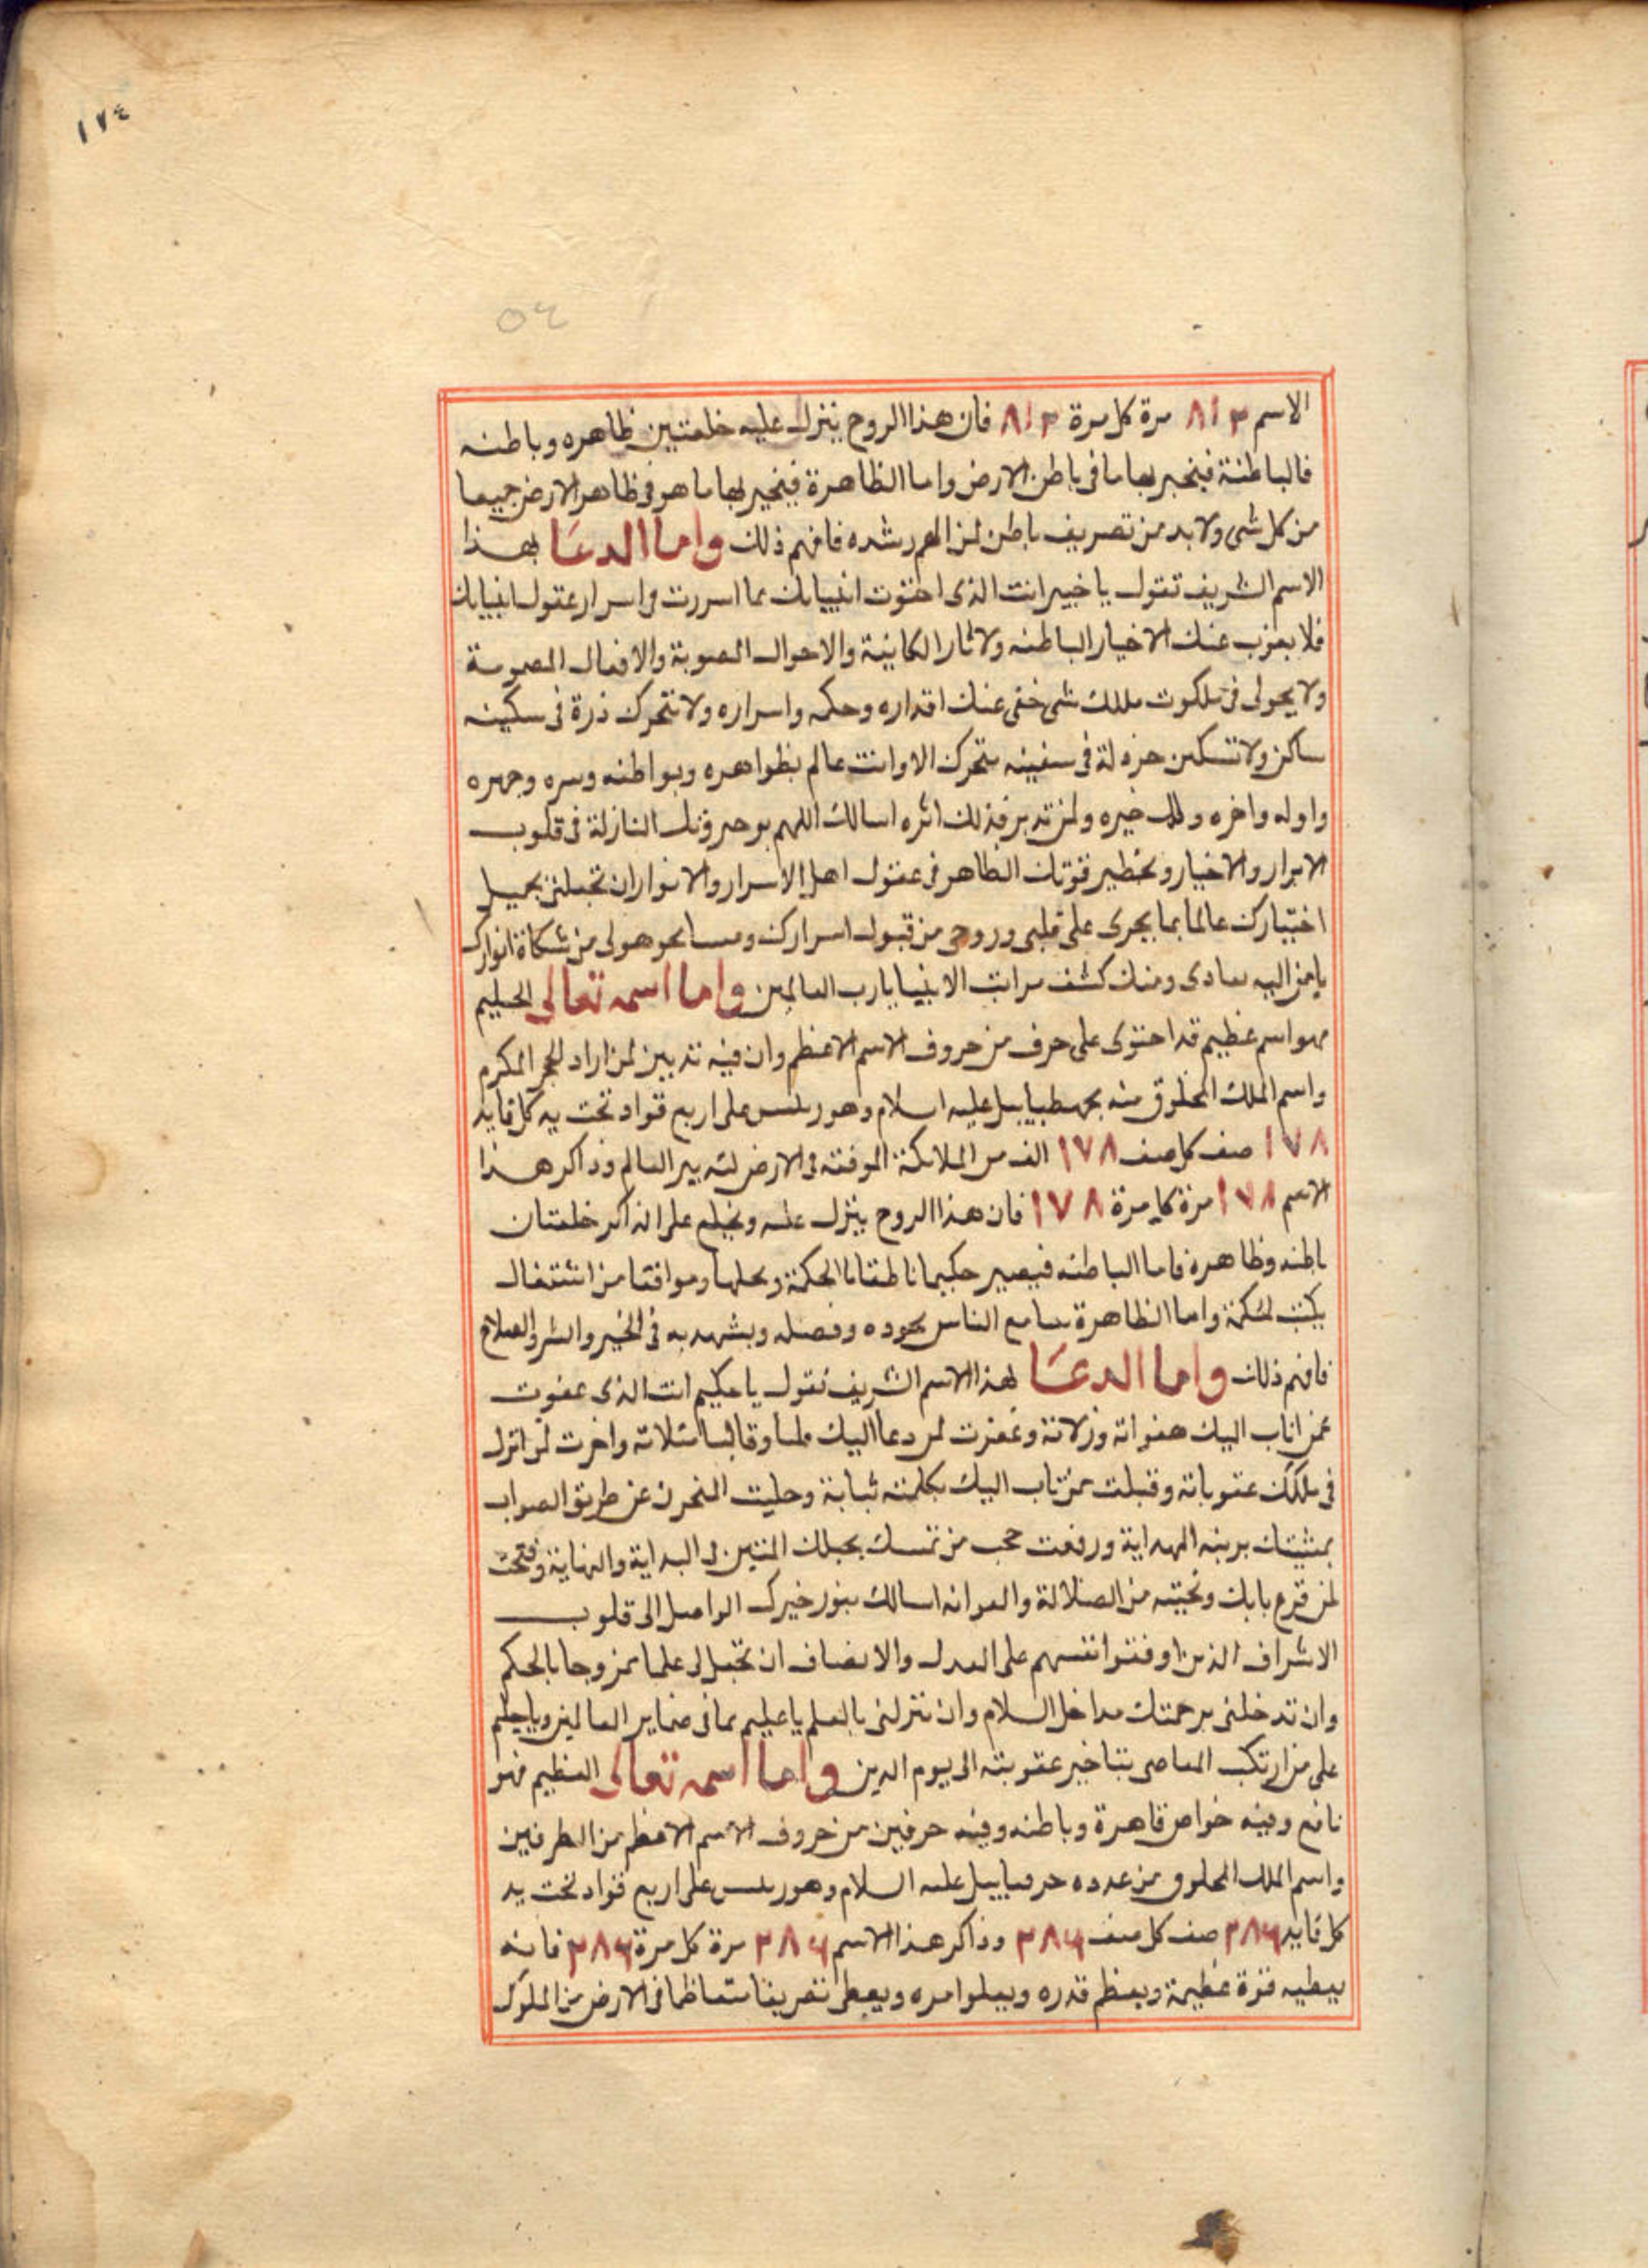 ١٧٤
٥٤
الاسم ٨١٢ مرة كل مرة ٨١٢ فان هذا الروح ينزل عليه خلعتين ظاهره وباطنه
فالباطنة فيخبر بها ما فى باطن الارض واما الظاهرة فيخبر بها ما هو فى ظاهر الارض جميعا
من كل شى ولا بد من تصريف باطن لمن الهم رشده فافهم ذلك واما الدعا بهذا
الاسم الشريف تقول يا خبير انت الذى انبيايك بما اسررت فى اسرار عقول انبيايك
فلا يعزب عنك الاخبار الباطنه ولاثار الكاينة والاحوال والافعال
ولا فى ملكوت ملكك شى خفى عنك اقداره وحكمه واسراره ولا تتحرك ذرة فى سكينه
ساكن ولا تسكن فى سفينه متحرك الا وانت عالم بظواهره وبواطنه وسره وجهره
واوله واخره خيره ولمن اثره اسالك اللهم النازلة فى قلوب
الابرار والاخيار قوتك الظاهر فى عقول اهل الاسرار والانوار ان تجعلنى بجميل
اختيارك عالما بما يجرى على قلبى وروحى من قبول اسرارك من شكاة انوارك
يا من اليه معادى ومنك كشف مراتب الانبيا يا رب العالمين واما اسمه تعالى الحليم
فهو اسم عظيم قد احتوى على حرف من حروف الاسم الاعظم وان فيه تدبير لمن اراد الحجر المكرم
واسم الملك المخلوق منه عليه اسلام وهو رئيس على اربع قواد تحت يد كل قايد
١٧٨ صف كل صف ١٧٨ الف من الملائكة فى الارض العالم وذاكر هذا
الاسم ١٧٨ مرة كل مرة ١٧٨ فان هذا الروح ينزل عليه ويخلع على الذاكر خلعتان
باطنه وظاهرة فاما الباطنه فيصير حكيما ناطقا بالحكمة من اشتغال
واما الظاهرة الناس بجوده وفضله ويشهد به فى الخير والشر والصلاح
فافهم ذلك واما الدعا لهذا الاسم الشريف تقول يا حكيم انت الذى عفوت
عمن اناب اليك هفواته وزلاته وغفرت لمن دعا اليك واخرت
فى ملكك عقوباته وقبلت من تاب اليك بكلمته وحليت المنحرف عن طريق الصواب
بمشيتك الهداية ورفعت حجب من تمسك بحبلك المتين فى البداية والنهاية وفتحت
لمن قرع بابك ونجيته من الضلالة اسالك بنور خيرك الواصل الى قلوب
الاشراف الذين اوقفوا انفسهم على العدل والانصاف ان تجعل لى علما ممزوجا بالحكم
وان تدخلنى برحمتك مداخل السلام وان تنزلنى بالعلم يا عليم بما فى ضماير العالمين ويا حليم
على من ارتكب المعاصى بتاخير عقوبته الى يوم الدين واما اسمه تعالى العظيم فهو
نافع وفيه خواص قاهرة وباطنه وفيه حرفين من حروف الاسم الاعظم من الطرفين
واسم الملك المخلوق من عدده عليه السلام وهو رئيس على اربع قواد تحت يد
كل قايد ٢٨٦ صف كل صف ٢٨٦ وذاكر هذا الاسم ٢٨٦ مرة كل مرة ٢٨٦ فانه
يعطيه قوة عظيمة ويعظم قدره ويعلوا امره ويعطى فى الارض من الملوك